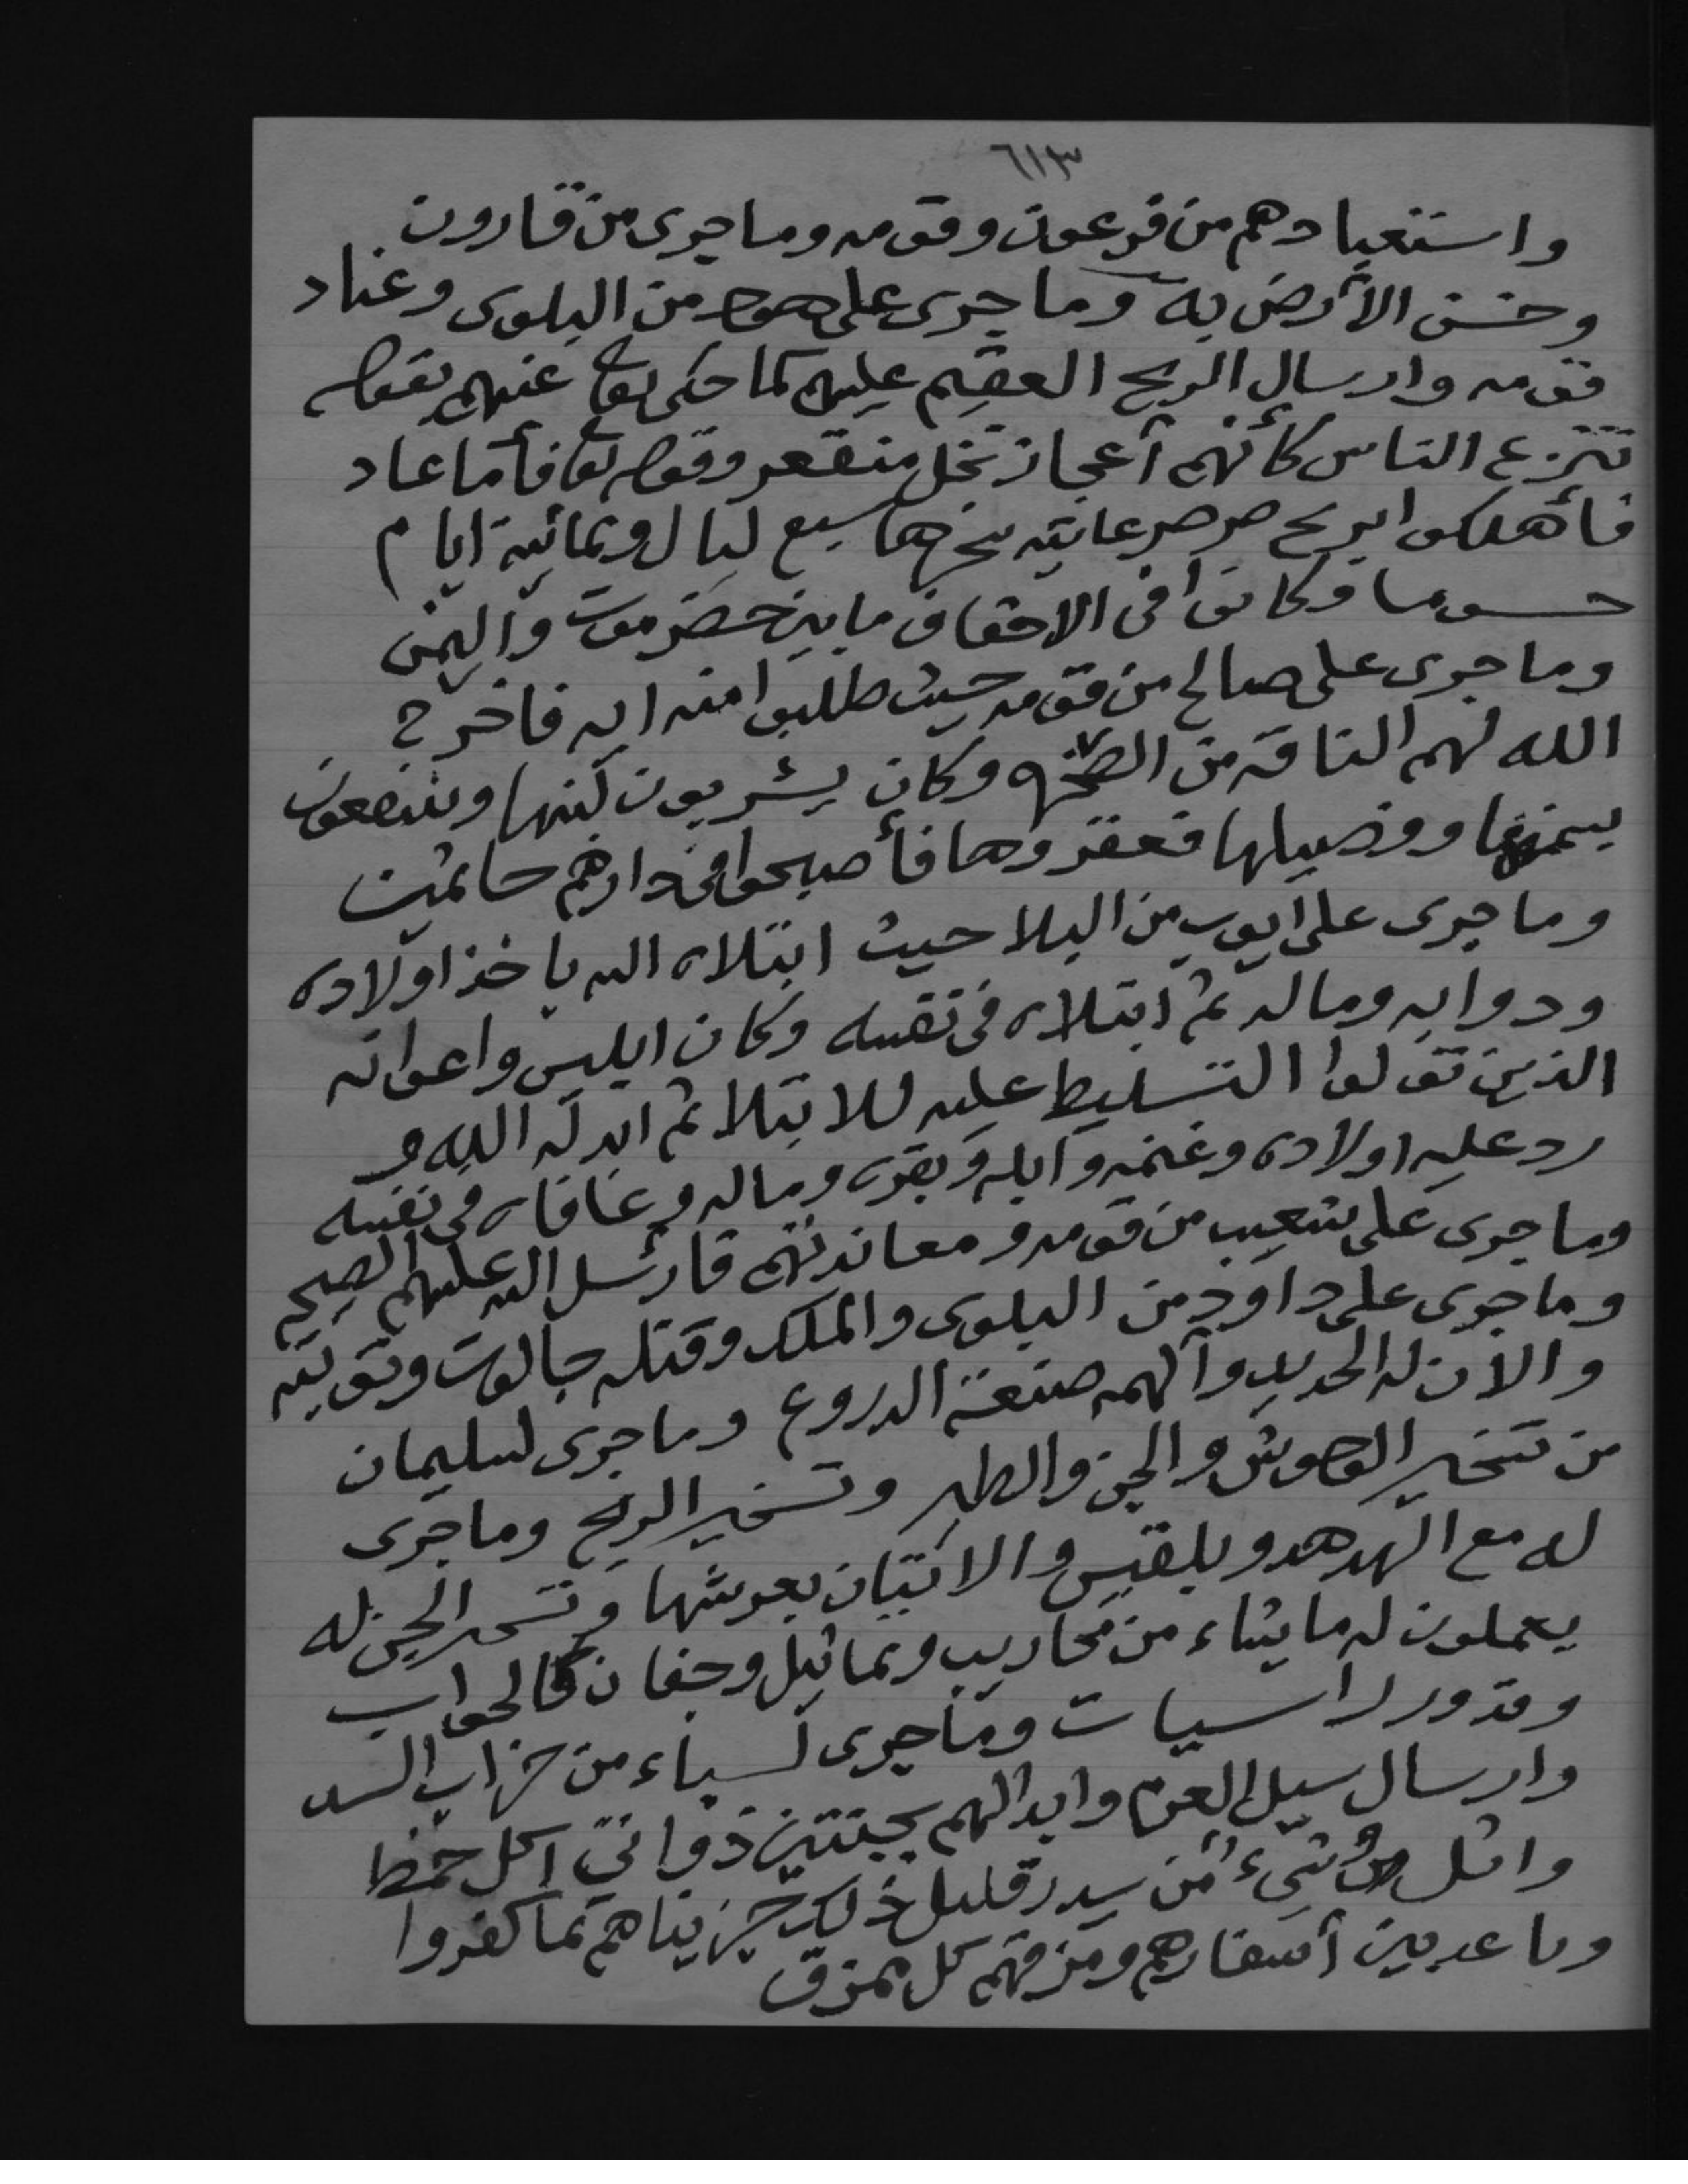 ٦١٣
واستعبادهم من فرعون وقومه وما جرى من قارون
وخسف الأرض به وما جرى على هود من البلوى وعناد
قومه وارسال الريح العقيم عليهم كما حكى تعا عنهم بقوله
تنزع الناس كأنهم أعجاز نخل منقعر وقوله تعا فأما عاد
فأهلكوا بريح صرصر عاتيه سخرها سبع ليال وثمانية ايام
حسوما وكانوا في الاحقاف ما بين حضرموت واليمن
وما جرى على صالح من قومه حيث طلبوا منه ايه فاخرج
الله لهم الناقه من الصخره وكان يشربون لبنها وينتفعون
بسمنها وفصيلها فعقروها فأصبحوا في دارهم جاثمين
وما جرى على ايوب من البلا حيث ابتلاه الله باخذ اولاده
ودوابه وماله ثم ابتلاه في نفسه وكان ابليس واعوانه
الذين تولوا التسليط عليه للابتلا ثم ابدله الله و
رد عليه اولاده وغنمه وابله وبقره وماله وعافاه في نفسه
وما جرى على شعيب من قومه ومعاندتهم فارسل الله عليهم الصيحه
وما جرى على داود من البلوى والملك وقتله جالوت وتوبته
والان له الحديد وألهمه صنعة الدروع وما جرى لسليمان
من تسخير الوحوش والجن والطير وتسخير الريح وما جرى
له مع الهدهد وبلقيس والاتيان بعرشها وتسخير الجن له
يعملون له ما يشاء من محاريب وتماثيل وجفان كالجواب
وقدور راسيات وما جرى لسباء من خراب السد
وارسال سيل العرم وابدالهم بجنتين ذواتي اكل خمط
واثل وشيء من سدر قليل ذلك جزيناهم بما كفروا
وباعد بين أسفارهم ومزقهم كل ممزق